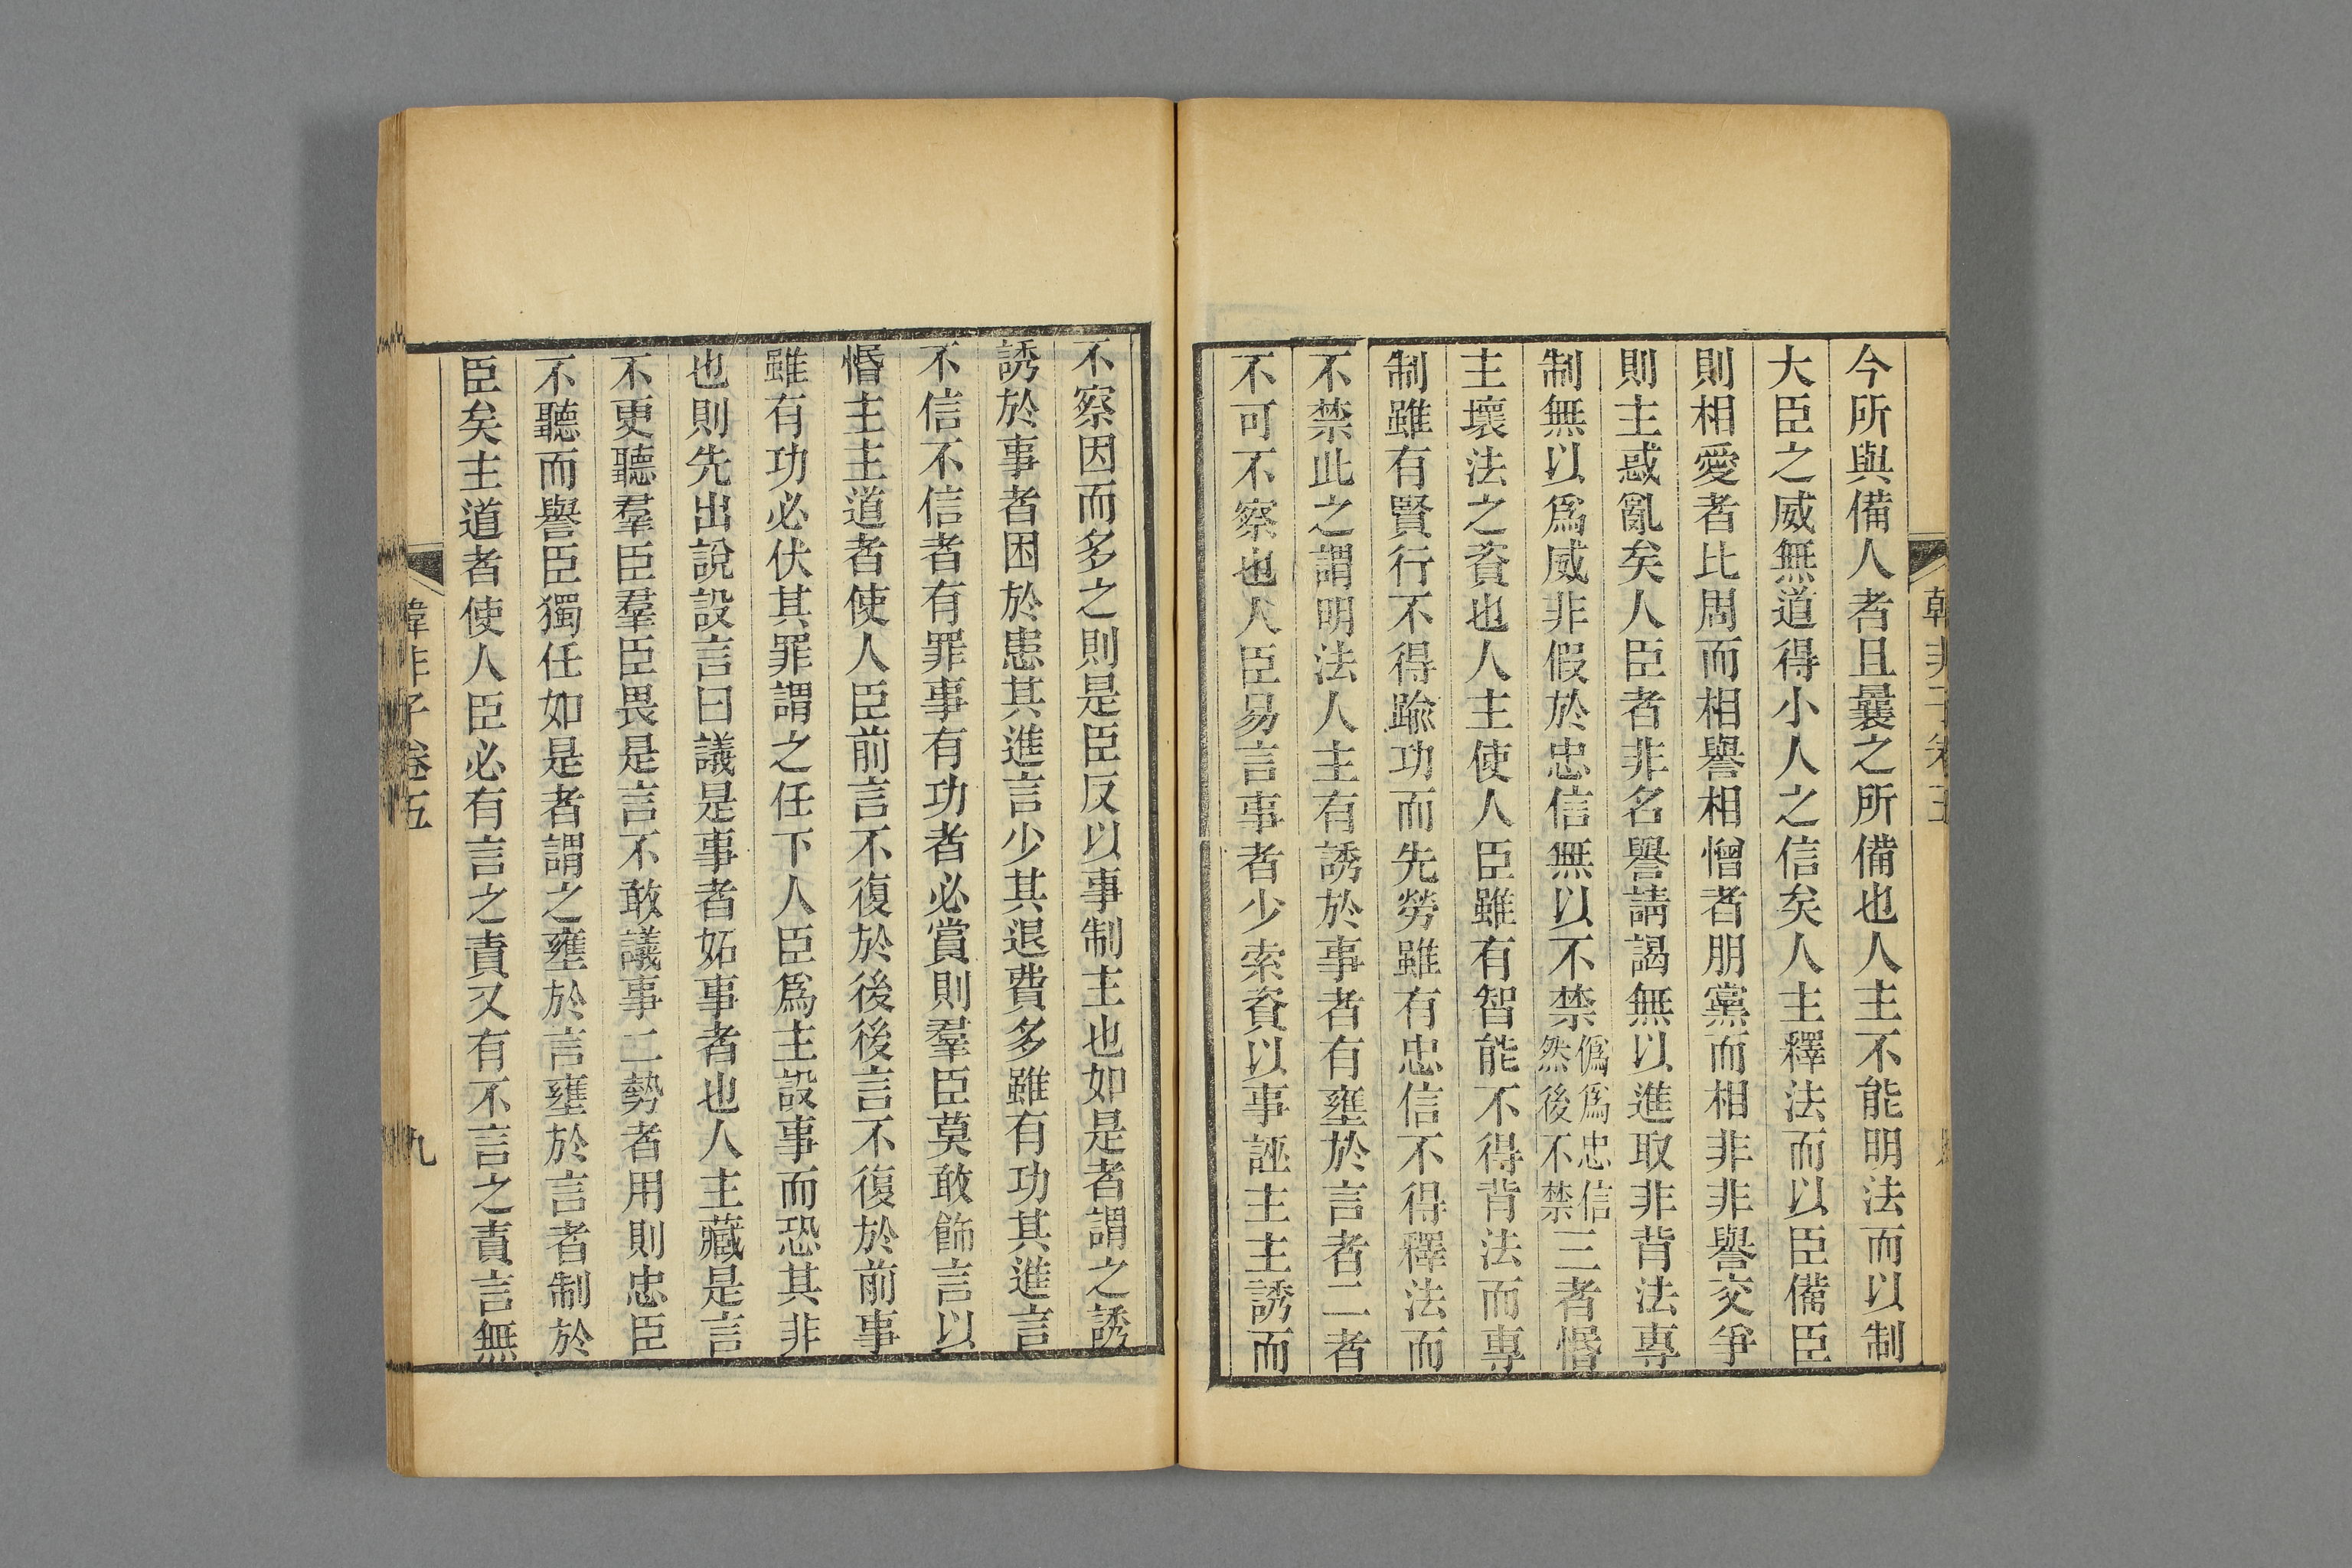 今所與備人者且曩之所備也人主不能明法而以制
大臣之威無道得小人之信矣人主釋法而以臣備臣
則相愛者比周而相譽相憎者朋黨而相非非譽交爭
則主惑亂矣人臣者非名譽請謁無以進取非背法專
制無以爲威非假於忠信無以不禁僞爲忠信然後不禁三者惽
主壞法之資也人主使人臣雖有智能不得背法而專
制雖有賢行不得踰功而先勞雖有忠信不得釋法而
不禁此之謂明法人主有誘於事者有壅於言者二者
不可不察也人臣易言事者少索資以事誣主主誘而
不察因而多之則是臣反以事制主也如是者謂之誘
誘於事者困於患其進言少其退費多雖有功其進言
不信不信者有罪事有功者必賞則羣臣莫敢飾言以
惽主主道者使人臣前言不復於後後言不復於前事
雖有功必伏其罪謂之任下人臣爲主設事而恐其非
也則先出說設言曰議是事者妬事者也人主藏是言
不更聽羣臣羣臣畏是言不敢議事二勢者用則忠臣
不聽而譽臣獨任如是者謂之壅於言壅於言者制於
臣矣主道者使人臣必有言之責又有不言之責言無
韓非子卷五
九